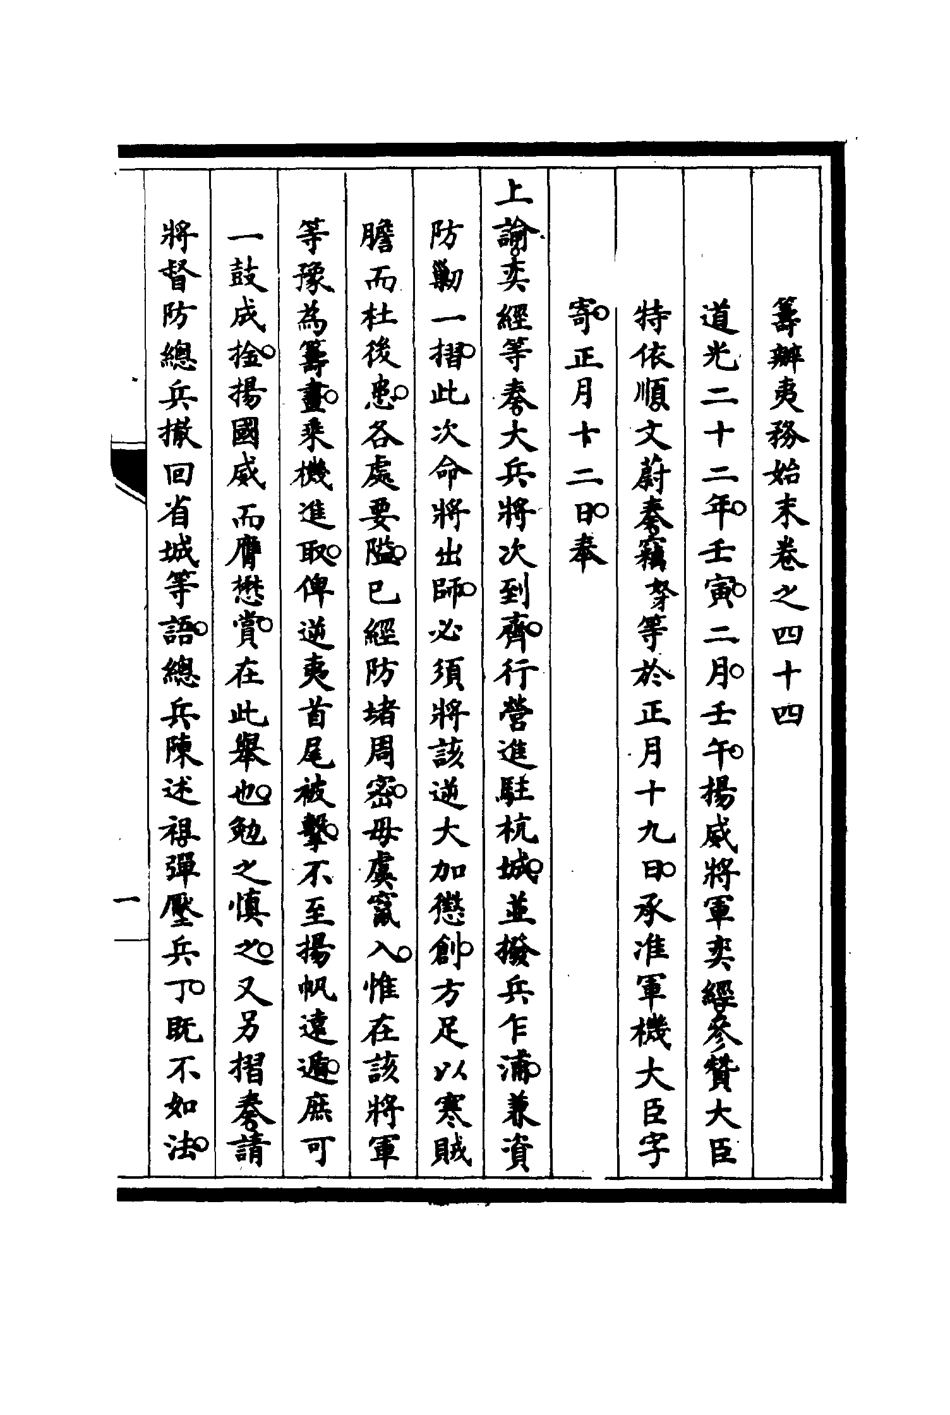 籌辦夷務始末卷之四十四
道光二十二年。壬寅。二月。壬午。揚威將軍奕經參贊大臣
特依順。文蔚奏。竊奴才等於正月十九日。承准軍機大臣字
寄。正月十二日。奉
上諭。奕經等奏。大兵將次到齊。行營進駐杭城。並撥兵乍浦。兼資
防勦一摺。此次命將出師。必須將該逆大加懲創。方足以寒賊
膽而杜後患。各處要隘。已經防堵周密。毋虞竄入。惟在該將軍
等豫為籌畫。乘機進取。俾逆夷首尾被擊。不至揚帆遠遁。庶可
一鼓成擒。揚國威而膺懋賞。在此舉也。勉之慎之。又另摺奏。請
將督防總兵撤回省城等語。總兵陳述祖。彈壓兵丁。既不如法。
一